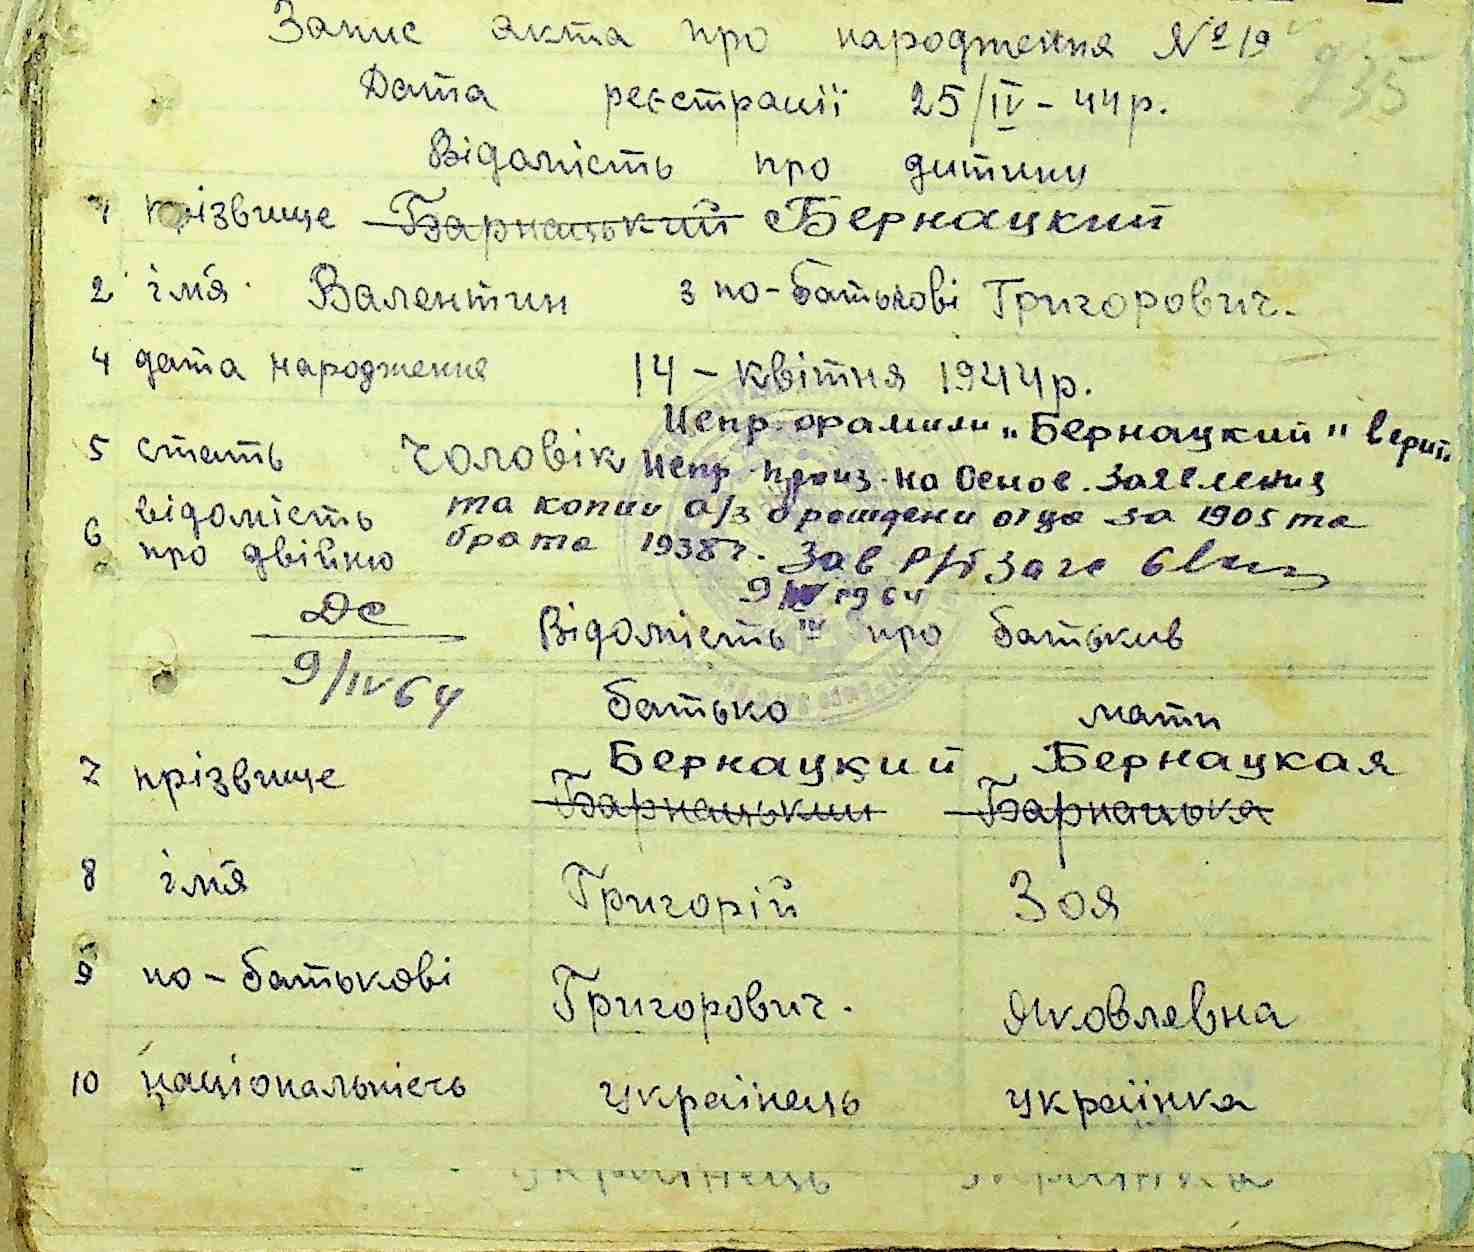 Запис акта про народження № 19
235
Дата реєстрації 25/IV - 44 р.
Відомість про дитину
1 прізвище Барнацький Бернацкий
2 ім'я Валентин 3 по-батькові Григорович.
4 дата народження 14 - квітня 1944 р.
Испр. фамили "Бернацкий" верит.
5 стать чоловік Испр произ. на Основ. Заявления
6 відомість про двійню та копии а/з о рождени отца за 1905 та
брата 1938 г. Зав р/б Загс
9 IV 1964
Відомість про батьків
9/IV 64
батько мати
Бернацкий Бернацкая
7 прізвище Барнацький Барнацька
8 ім'я Григорій Зоя
9 по-батькові Григорович. Яковлевна
10 національність українець українка